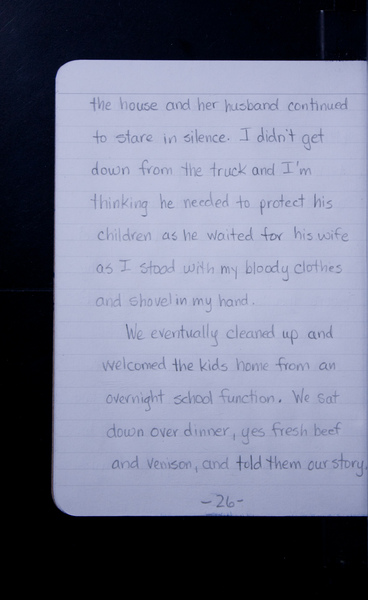 the house and her husband continued
to stare in silence. I didn't get
down from the truck and I'm
thinking he needed to protect his
children as he waited for his wife
as I stood with my bloody clothes
and shovel in my hand.
We eventually cleaned up and
welcomed the kids home from an
overnight school function. We sat
down over dinner, yes fresh beef
and venison, and told them our story.
-26-